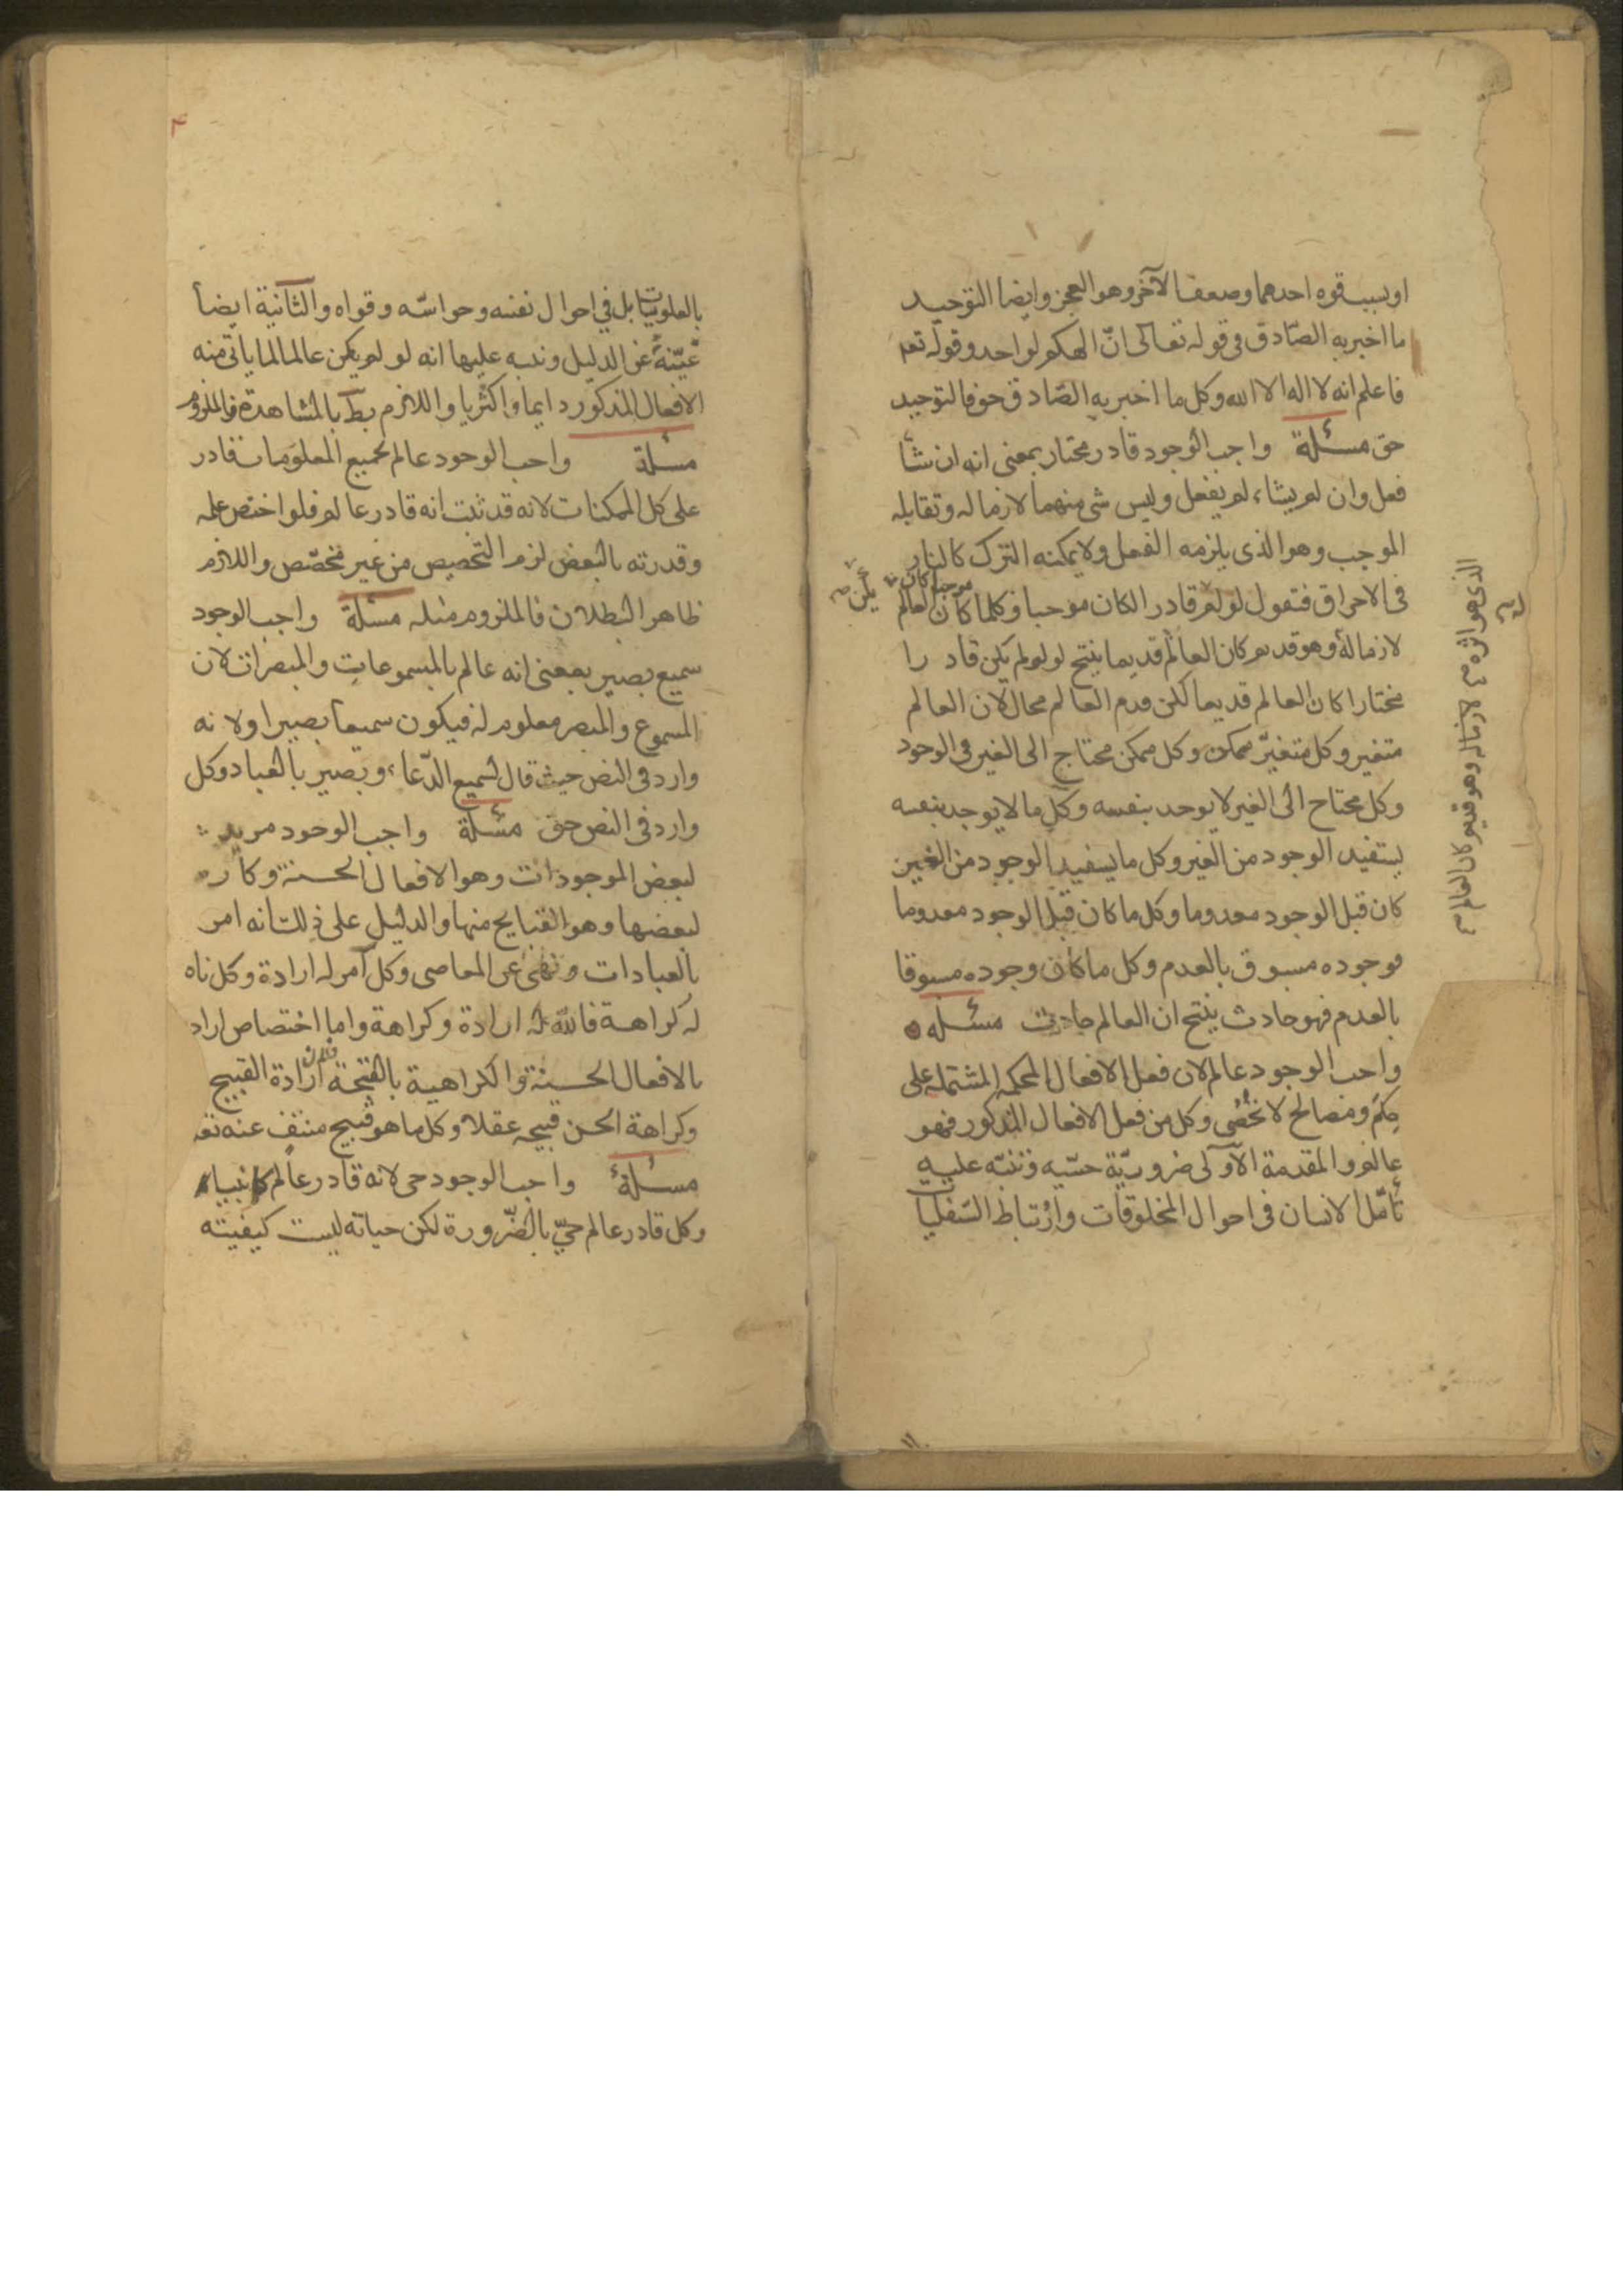 او بسبب قوه احدهما وضعف الآخر وهو العجز وايضا التوحيد
ما اخبر به الصّادق فى قوله تعالى انّ الهكم لواحد وقوله تعم
فاعلم انه لا اله الا الله وكل ما اخبر به الصّادق حق فالتوحيد
حق مسئلة واجب الوجود قادر مختار بمعنى انه ان شأ
فعل وان لم يشاء لم يفعل وليس شى منهما لازما له وتقابله
الموجب وهو الذى يلزمه الفعل ولا يمكنه الترك كالنار
فى الاحراق فتقول لو لم قادر الكان موجبا وكلما كان العالم
يكن صح
موجبا كان
لازما له وهو قديم كان العالم قديما ينتج لو لم يكن قادرا
مختارا كان العالم قديما لكن قدم العالم محال لان العالم
متغير وكل متغيّر ممكن وكل ممكن محتاج الى الغير فى الوجود
وكل محتاج الى الغير لا يوجد بنفسه وكل ما لا يوجد بنفسه
يستفيد الوجود من الغير وكل ما يستفيد الوجود من الغير
كان قبل الوجود معدوما وكل ما كان قبل الوجود معدوما
فوجوده مسبوق بالعدم وكل ما كان وجوده مسبوقا
بالعدم فهو حادث ينتج ان العالم حادث مسئله
واجب الوجود عالم لان فعل الافعال المحكمه المشتمله على
حكم ومصالح لا تحصى وكل من فعل الافعال المذكور فهو
عالم والمقدمة الاولى ضروريّة حسّيه وتنبّه عليه
تأمّل الانسان فى احوال المخلوقات وارتباط السّفليات
الذى هو اثره لازما له وهو قديم كان العالم
۴
بالعلويّات بل فى احوال نفسه وحواسّه وقواه والثانية ايضا
غنيّة عن الدليل ونبه عليها انه لو لم يكن عالما لما ياتى منه
الافعال المذكور دايما واكثريا واللازم بط بالمشاهدة فالملزوم
مسئلة واجب الوجود عالم بجميع المعلومات قادر
على كل الممكنات لانه قد ثبت انه قادر عالم فلو اختص علمه
وقدرته بالبعض لزم التخصيص من غير مخصّص واللازم
ظاهر البطلان فالملزوم مثله مسئلة واجب الوجود
سميع بصير بمعنى انه عالم بالمسموعات والمبصرات لان
المسموع والمبصر معلوم له فيكون سميعا بصيرا ولانه
وارد فى النص حيث قال لسميع الدّعاء وبصير بالعباد وكل
وارد فى النص حق مسئلة واجب الوجود مريد
لبعض الموجودات وهو الافعال الحسنة وكاره
لبعضها وهو القبايح منها والدليل على ذلك انه امر
بالعبادات ونهى عن المعاصى وكل آمر له ارادة وكل ناه
له كراهة فالله له ارادة وكراهة واما اختصاص اراد
بالافعال الحسنة والكراهية بالقبيحة فلان ارادة القبيح
وكراهة الحسن قبيحه عقلا وكل ما هو قبيح منتف عنه تعه
مسئلة واجب الوجود حى لانه قادر عالم
وكل قادر عالم حيّ بالضّرورة لكن حياته ليست كيفيته